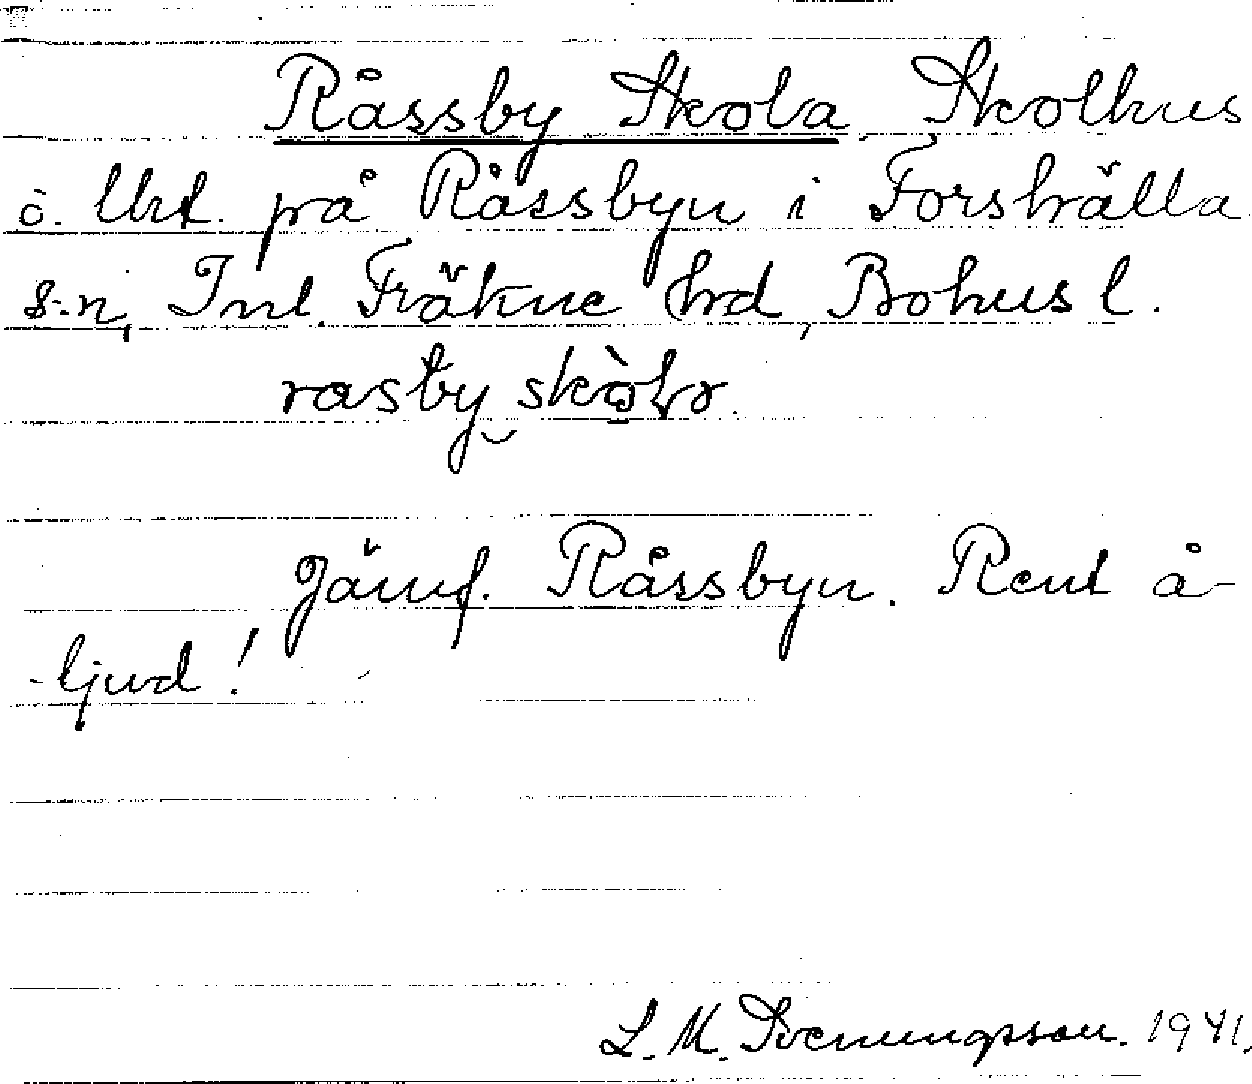 Råssby Skola, Skolhus
o. Urt. på Råssbyn i Forshälla
s-n, Inl. Fräkne hrd, Bohusl.
Jämf. Råssbyn. Rent å-
-ljud!
L. M. Svenungsson. 1941.